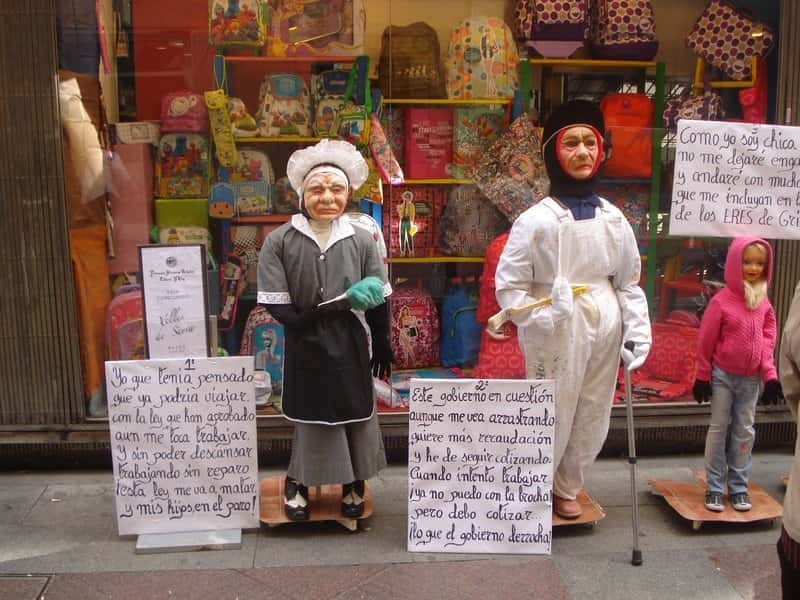 Velles
de
Serie
1ª
Yo que tenía pensado
que ya podría viajar,
con la ley que han aprobado
aun me toca trabajar.
Y sin poder descansar
trabajando sin reparo
¡esta ley me va a matar
y mis hijos, en el paro!
2ª
Este gobierno en cuestión
aunque me vea arrastrando
quiere más recaudación
y he de seguir cotizando.
Cuando intento trabajar
¡ya no puedo con la brocha!
pero debo cotizar...
¡lo que el gobierno derrocha!
Como yo soy, chica
no me dejaré enga
y andaré con mucha
que me incluyan en l
de los ERES de Gri